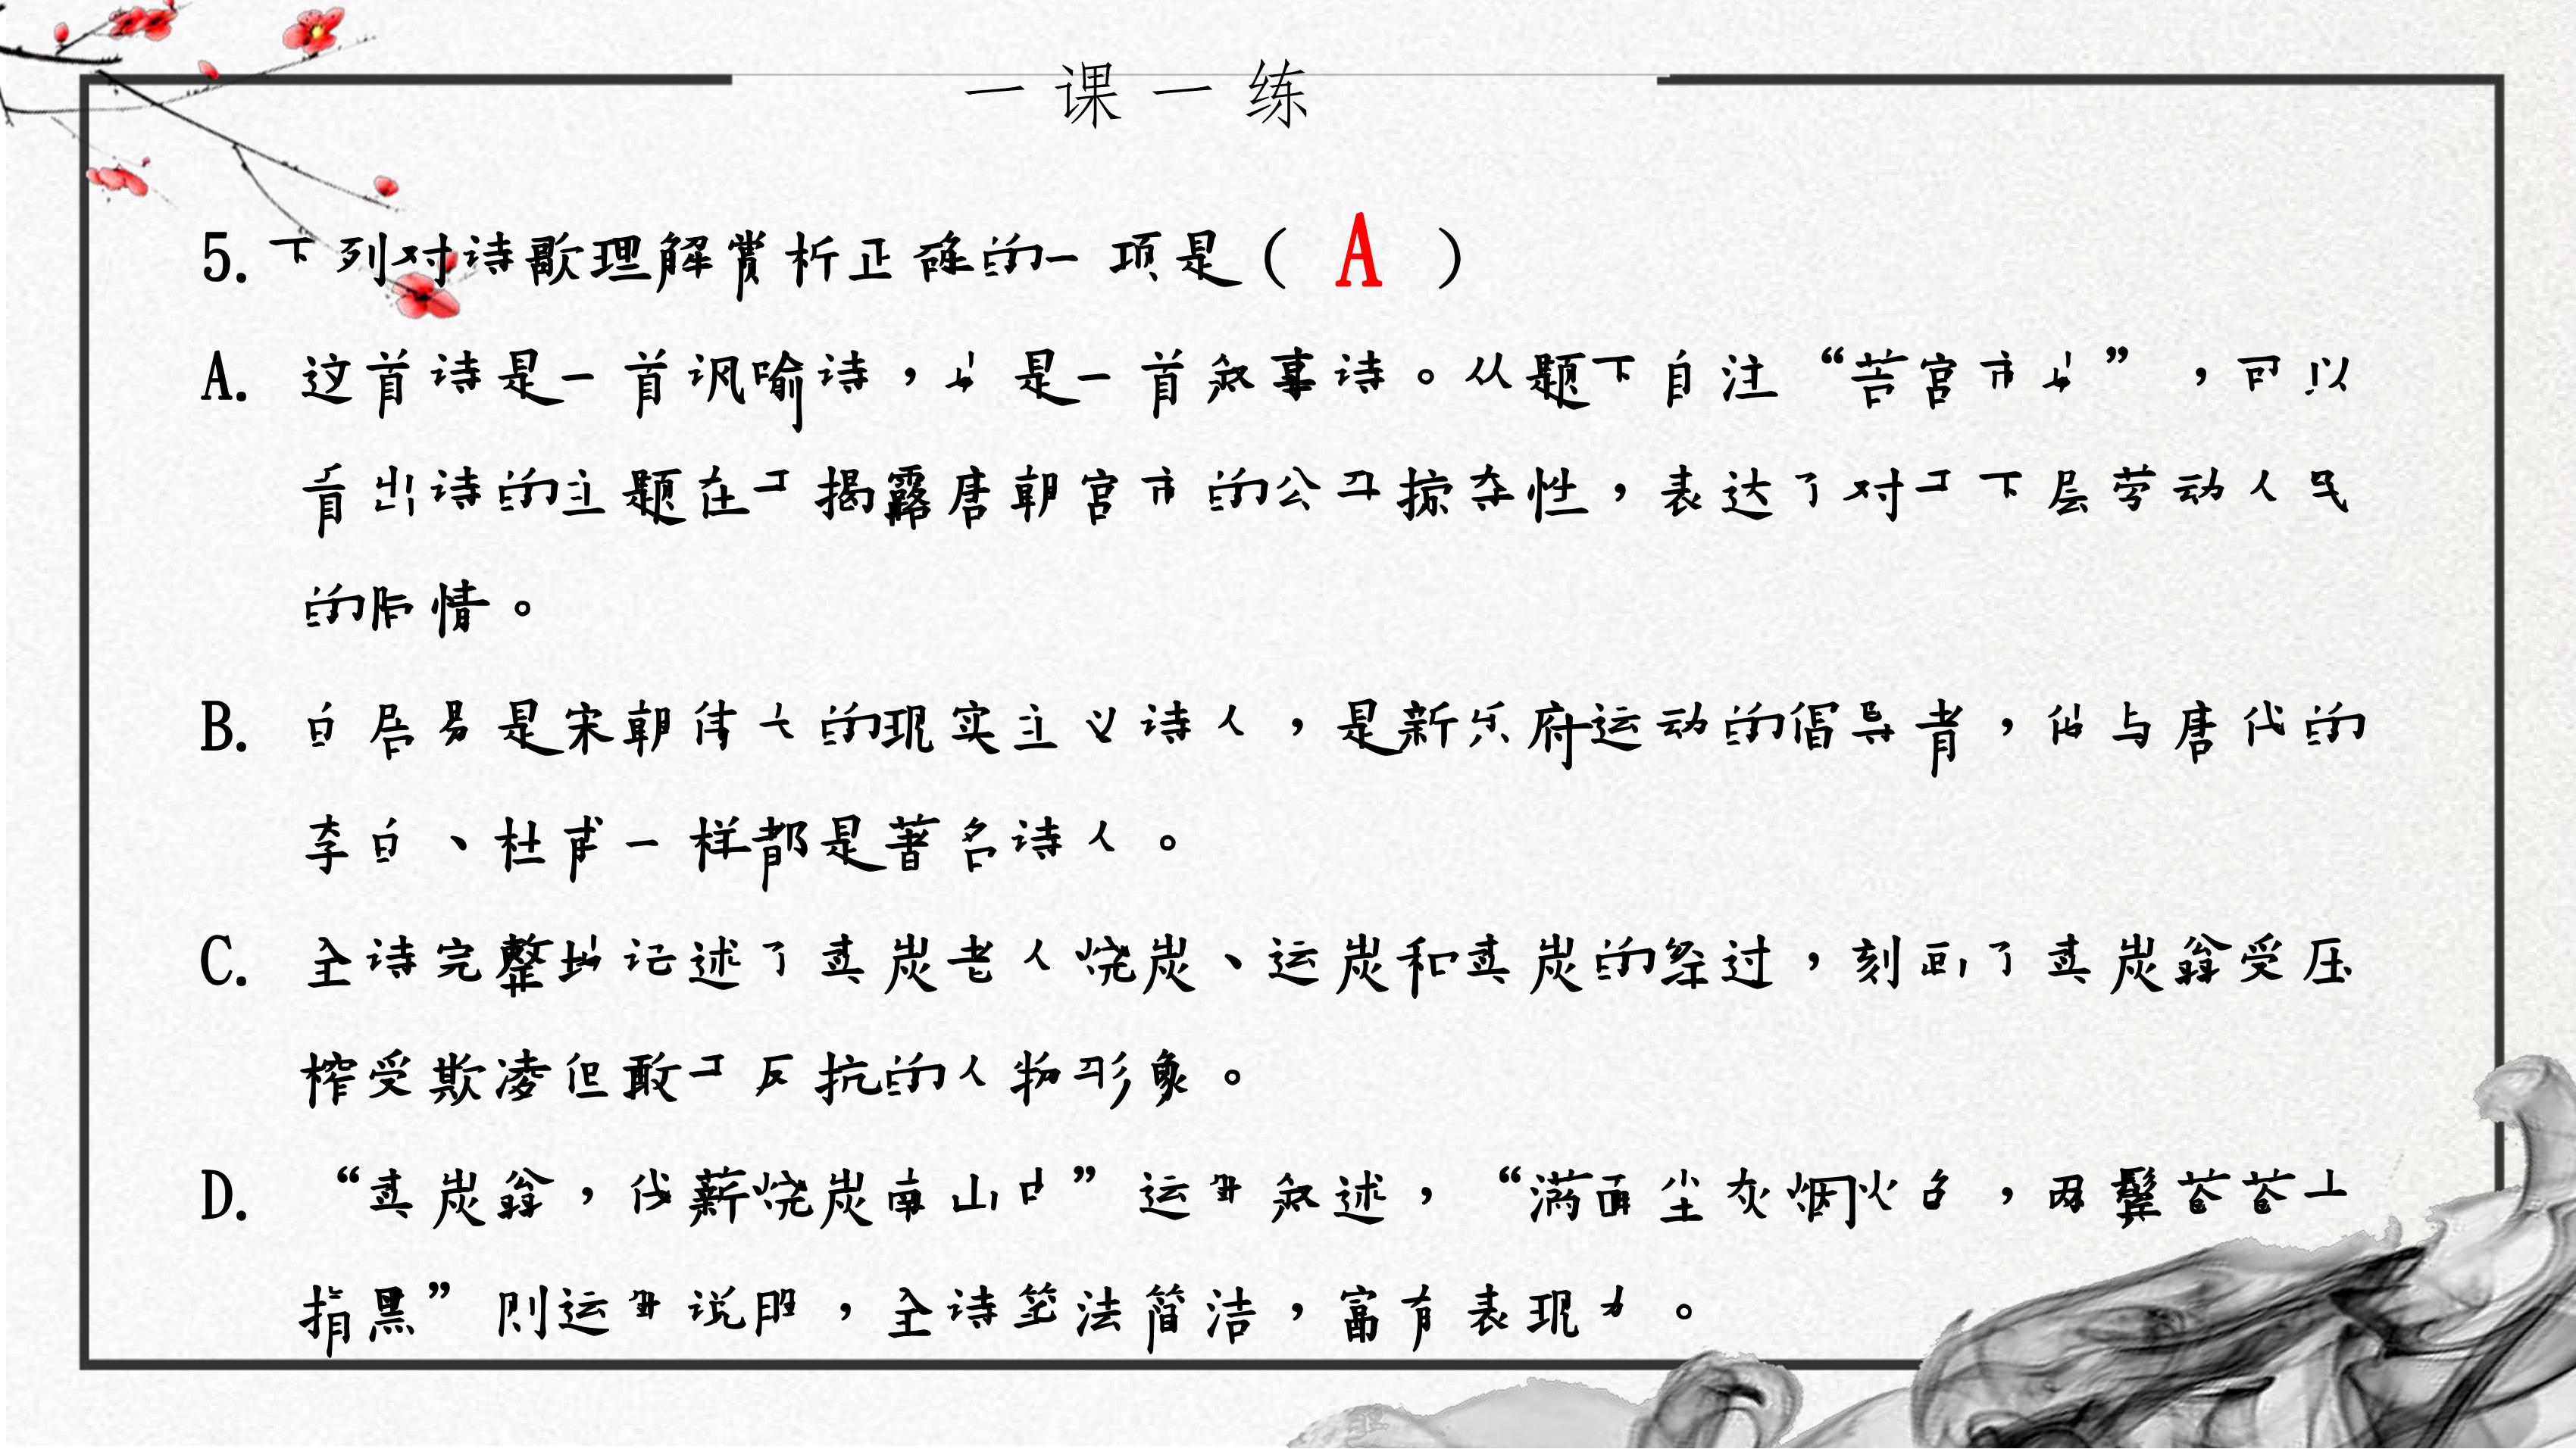 一课一练
5.下列对诗歌理解赏析正确的一项是( A )
A. 这首诗是一首讽喻诗，也是一首叙事诗。从题下自注“苦宫市也”，可以
看出诗的主题在于揭露唐朝宫市的公开掠夺性，表达了对于下层劳动人民
的同情。
B. 白居易是宋朝伟大的现实主义诗人，是新乐府运动的倡导者，他与唐代的
李白、杜甫一样都是著名诗人。
C. 全诗完整地记述了卖炭老人烧炭、运炭和卖炭的经过，刻画了卖炭翁受压
榨受欺凌但敢于反抗的人物形象。
D. “卖炭翁，伐薪烧炭南山中”运用叙述，“满面尘灰烟火色，两鬓苍苍十
指黑”则运用说明，全诗笔法简洁，富有表现力。